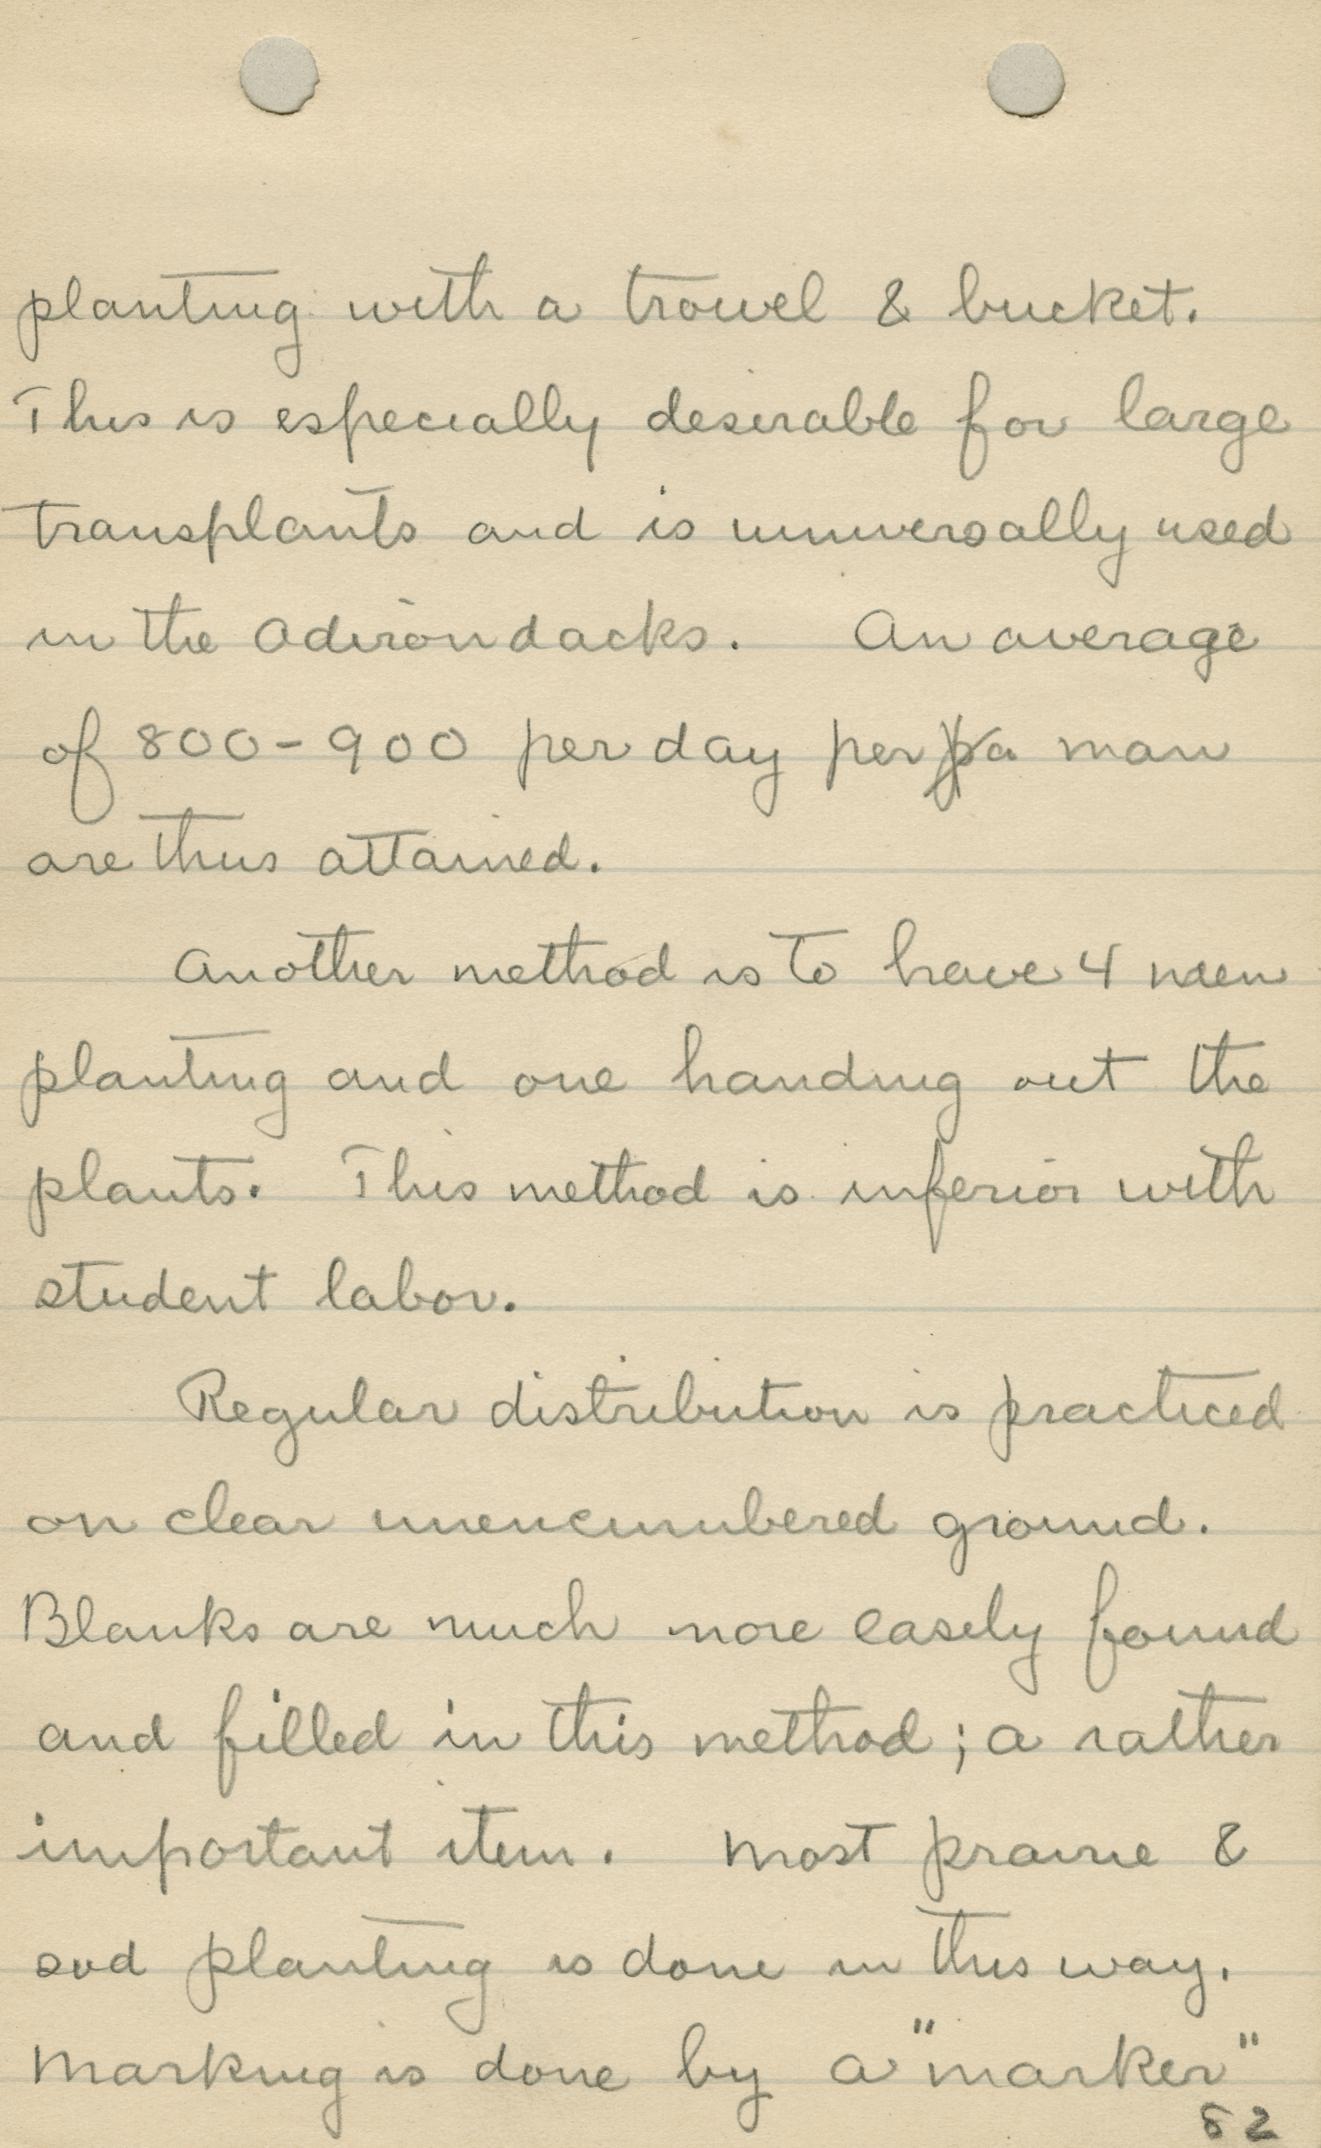 planting with a trowel & bucket.
This is especially desirable for large
transplants and is universally used
in the Adirondacks. An average
of 800-900 per day per a man
are thus attained.
Another method is to have 4 men
planting and one handing out the
plants. This method is inferior with
student labor.
Regular distribution is practiced
on clear unencumbered ground.
Blanks are much more easily found
and filled in this method; a rather
important item. Most prairie &
sod planting is done in this way.
Marking is done by a "marker"
82